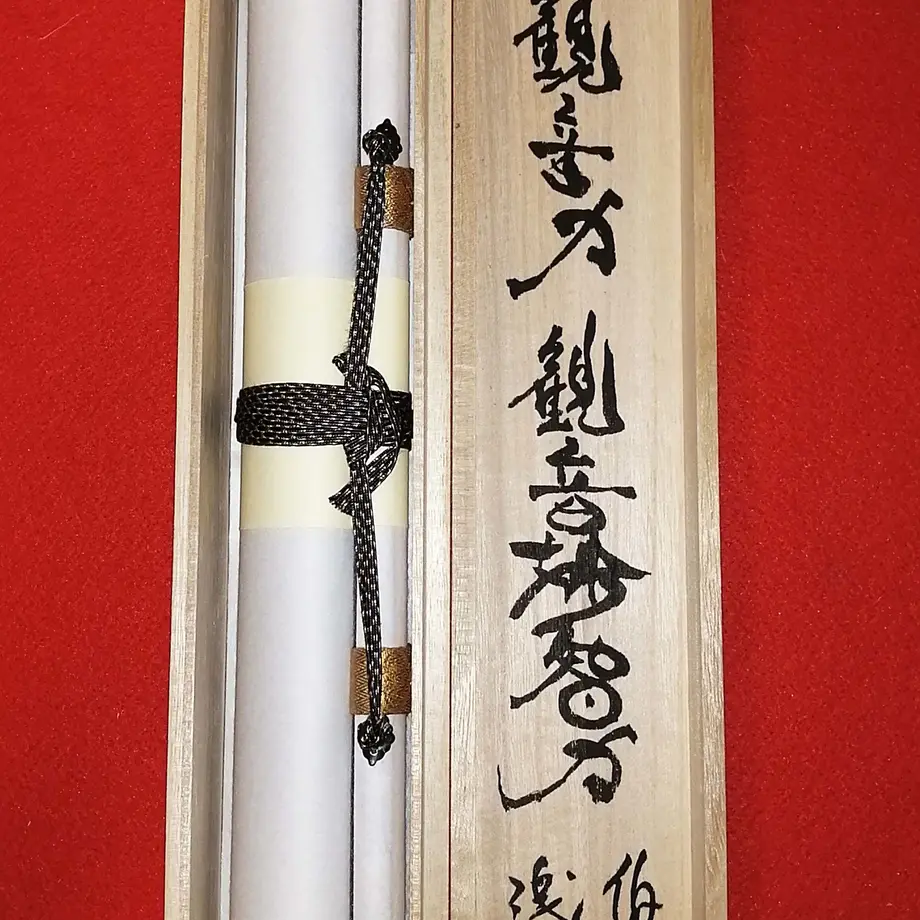 觀音力 觀音妙智力